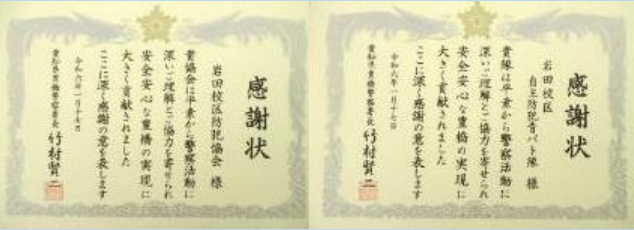 感謝状
岩田校区防犯協会 様
貴協会は平素から警察活動に
深いご理解とご協力を寄せられ
安全安心な豊橋の実現に
大きく貢献されました
ここに深く感謝の意を表します
令和六年一月十七日
愛知県豊橋警察署長 竹村賢二
感謝状
岩田校区
自主防犯青パト隊 様
貴隊は平素から警察活動に
深いご理解とご協力を寄せられ
安全安心な豊橋の実現に
大きく貢献されました
ここに深く感謝の意を表します
令和六年一月十七日
愛知県豊橋警察署長 竹村賢二